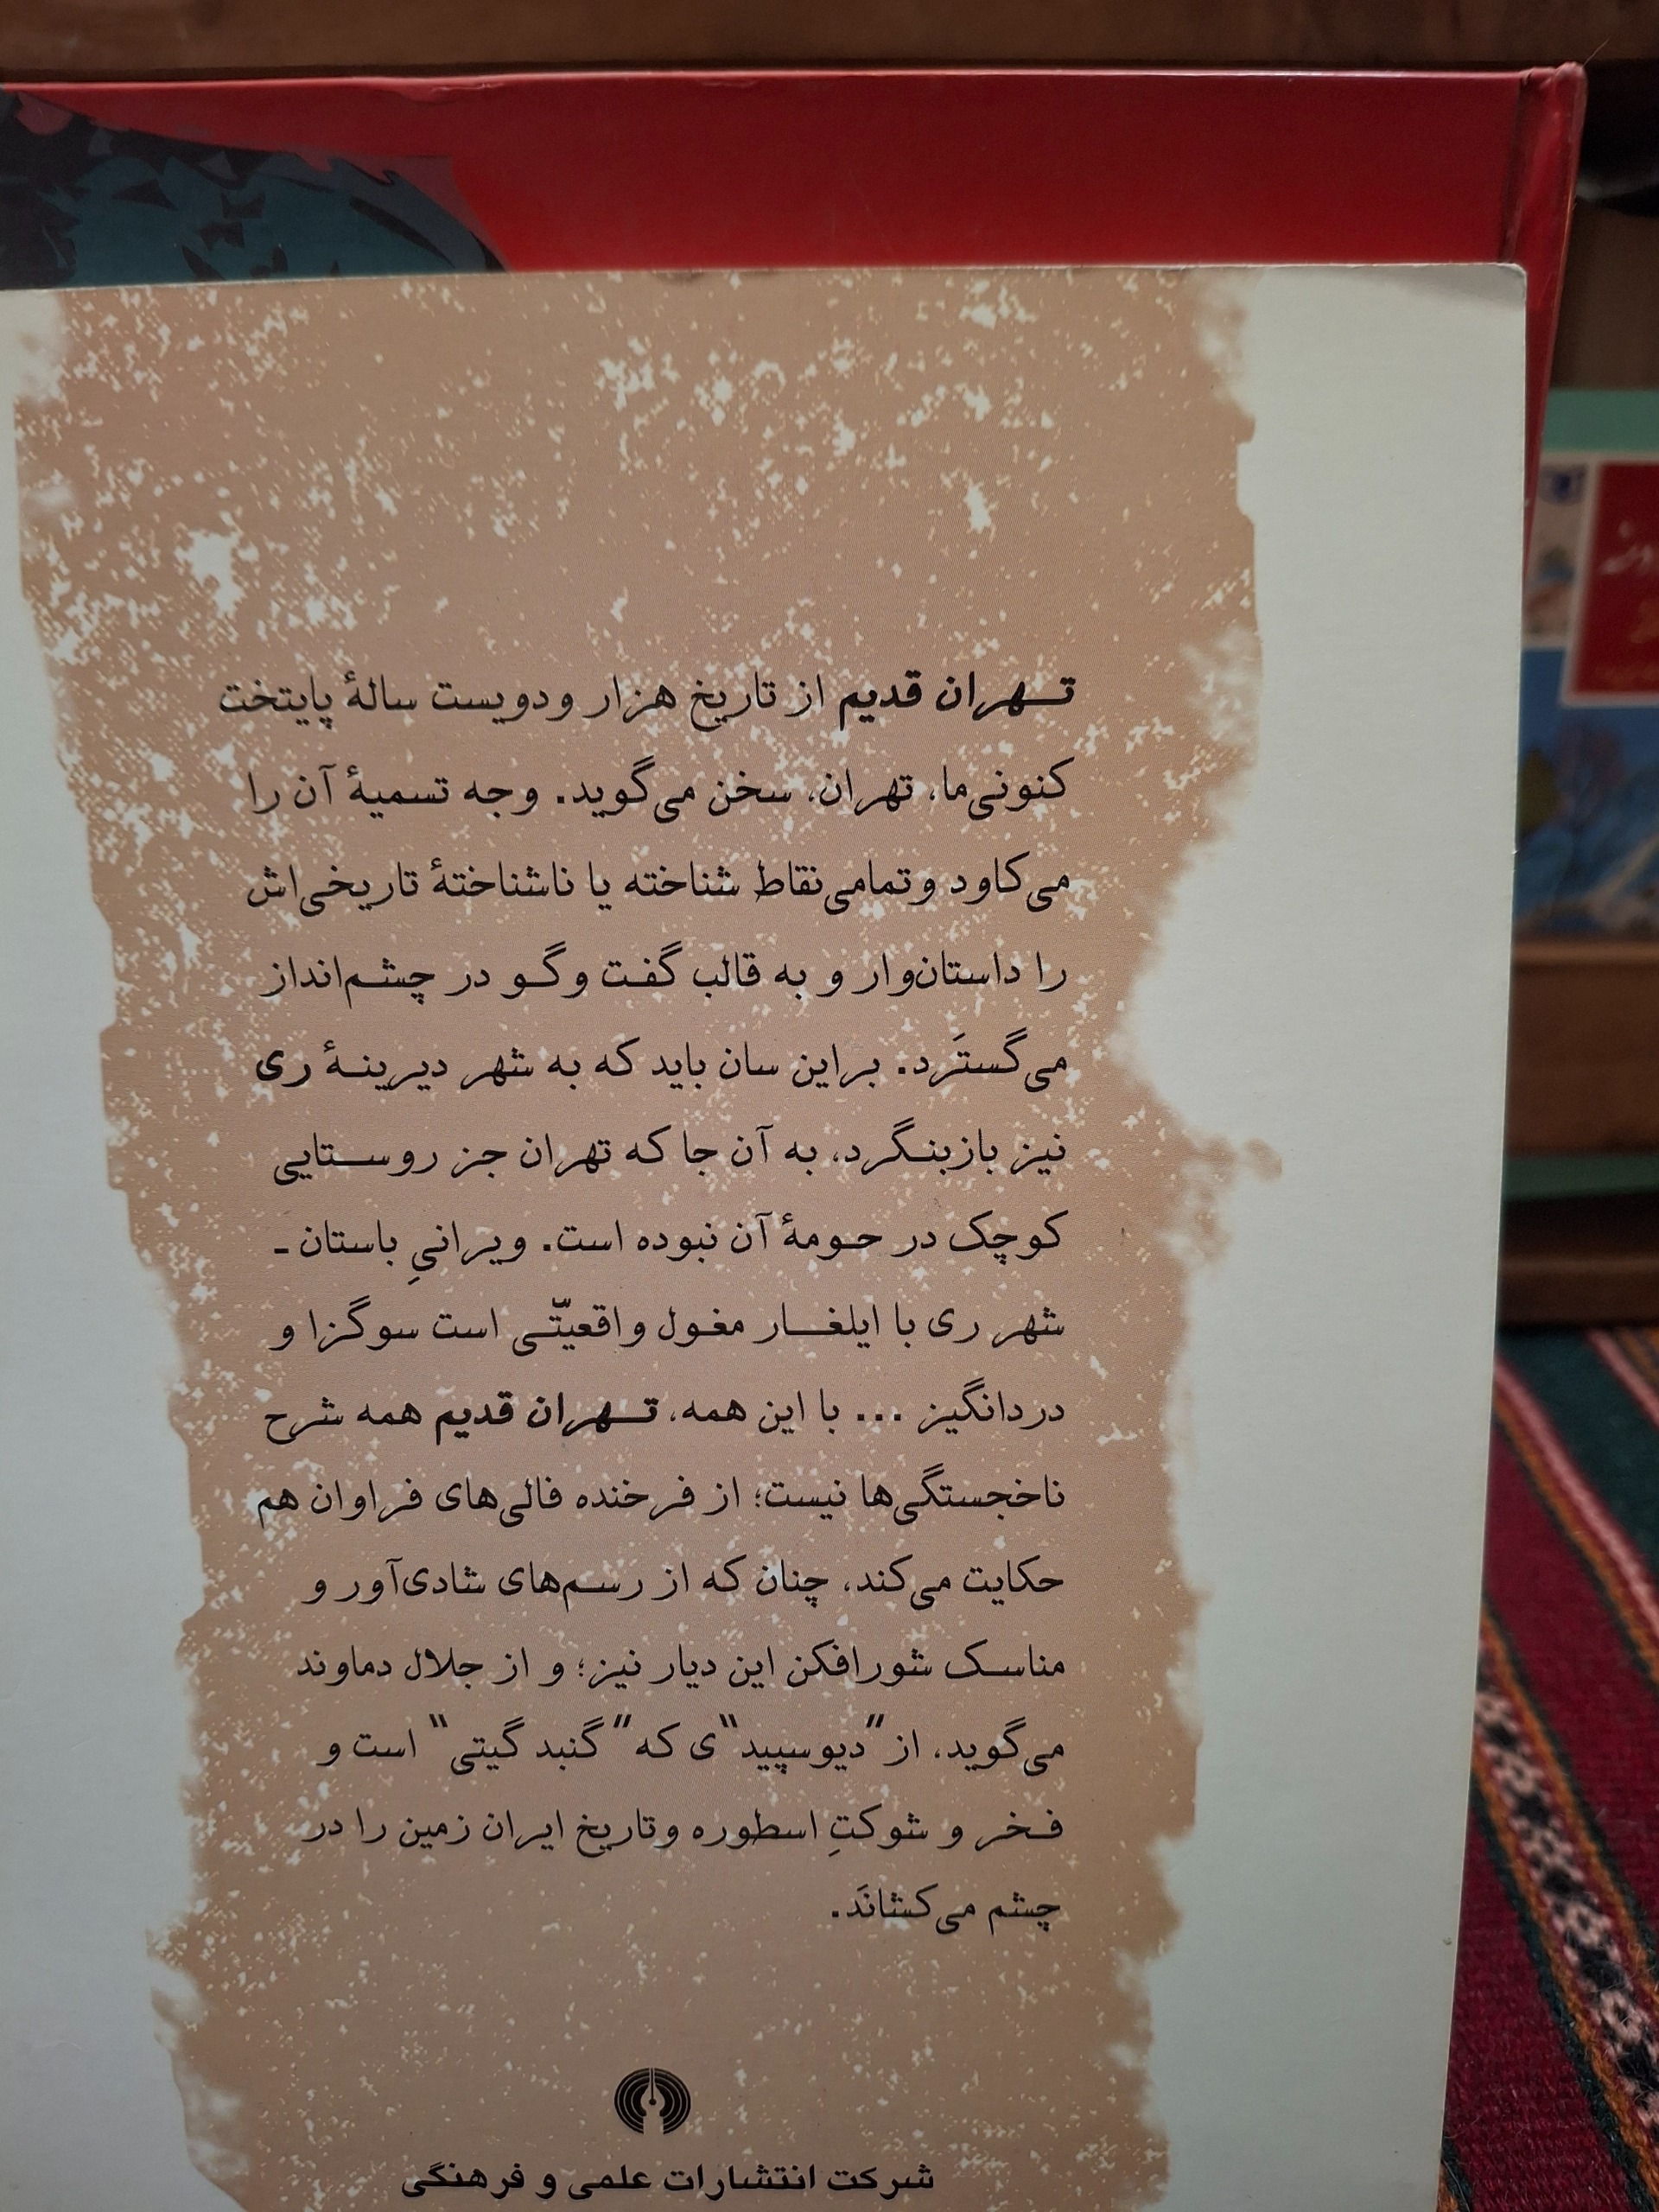 تهران قدیم از تاریخ هزار ودویست سالهٔ پایتخت
کنونی‌ما، تهران، سخن می‌گوید. وجه تسمیهٔ آن را
می‌کاود وتمامی‌نقاط شناخته یا ناشناختهٔ تاریخی‌اش
را داستان‌وار و به قالب گفت وگو در چشم‌انداز
می‌گستَرد. براین سان باید که به شهر دیرینهٔ ری
نیز بازبنگرد، به آن جا که تهران جز روستایی
کوچک در حومهٔ آن نبوده است. ویرانیِ باستان ـ
شهر ری با ایلغار مغول واقعیّتی است سوگزا و
دردانگیز ... با این همه، تهران قدیم همه شرح
ناخجستگی‌ها نیست؛ از فرخنده فالی‌های فراوان هم
حکایت می‌کند، چنان که از رسم‌های شادی‌آور و
مناسک شورافکن این دیار نیز؛ و از جلال دماوند
می‌گوید، از "دیوسپید"ی که "گنبد گیتی" است و
فخر و شوکتِ اسطوره وتاریخ ایران زمین را در
چشم می‌کشانَد.
شرکت انتشارات علمی و فرهنگی